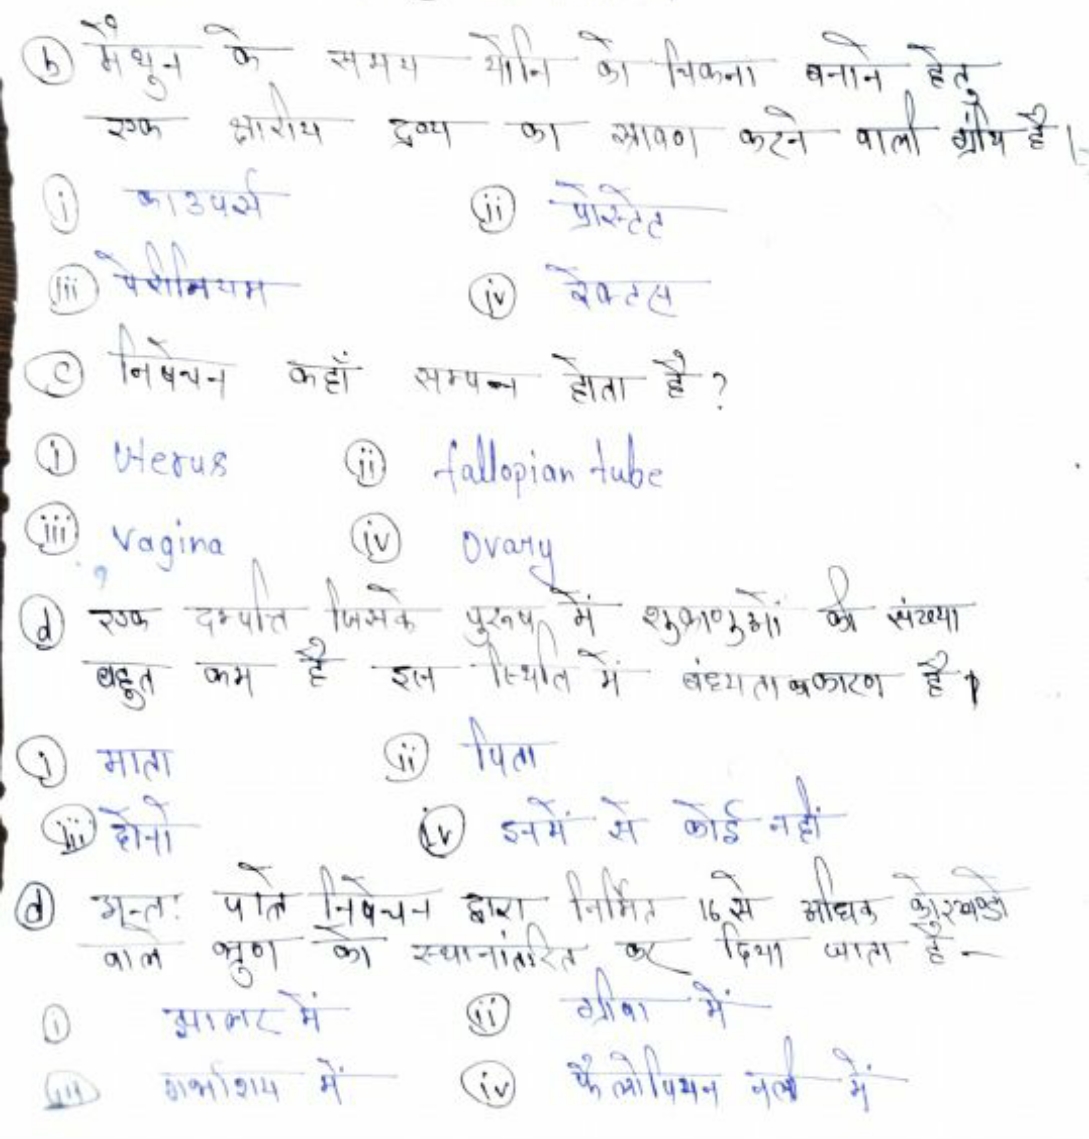 (b) मैथुन के समय योनि को चिकना बनाने हेतु
एक क्षारीय द्रव्य का स्रावण करने वाली ग्रंथि है।
(i) काउपर्स (ii) प्रोस्टेट
(iii) पेरीनियम (iv) रेक्टल
(c) निषेचन कहाँ सम्पन्न होता है?
(i) Uterus (ii) fallopian tube
(iii) Vagina (iv) Ovary
(d) एक दम्पत्ति जिसके पुरुष में शुक्राणुओं की संख्या
बहुत कम है इस स्थिति में बंध्यता का कारण है।
(i) माता (ii) पिता
(iii) दोनों (iv) इनमें से कोई नहीं
(d) अन्तः पात्रे निषेचन द्वारा निर्मित 16 से अधिक कोरखण्डो
वाले भ्रूण को स्थानांतरित कर दिया जाता है -
(i) झालर में (ii) ग्रीवा में
(iii) गर्भाशय में (iv) फैलोपियन नली में